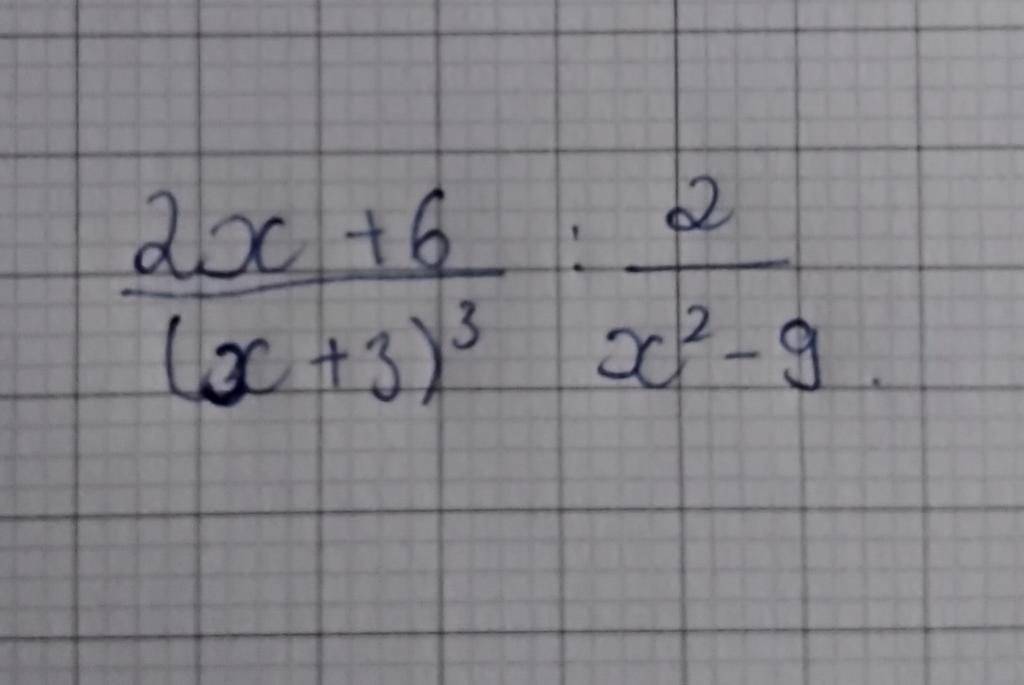 2x + 6 : 2
(x + 3)³ x² - 9.